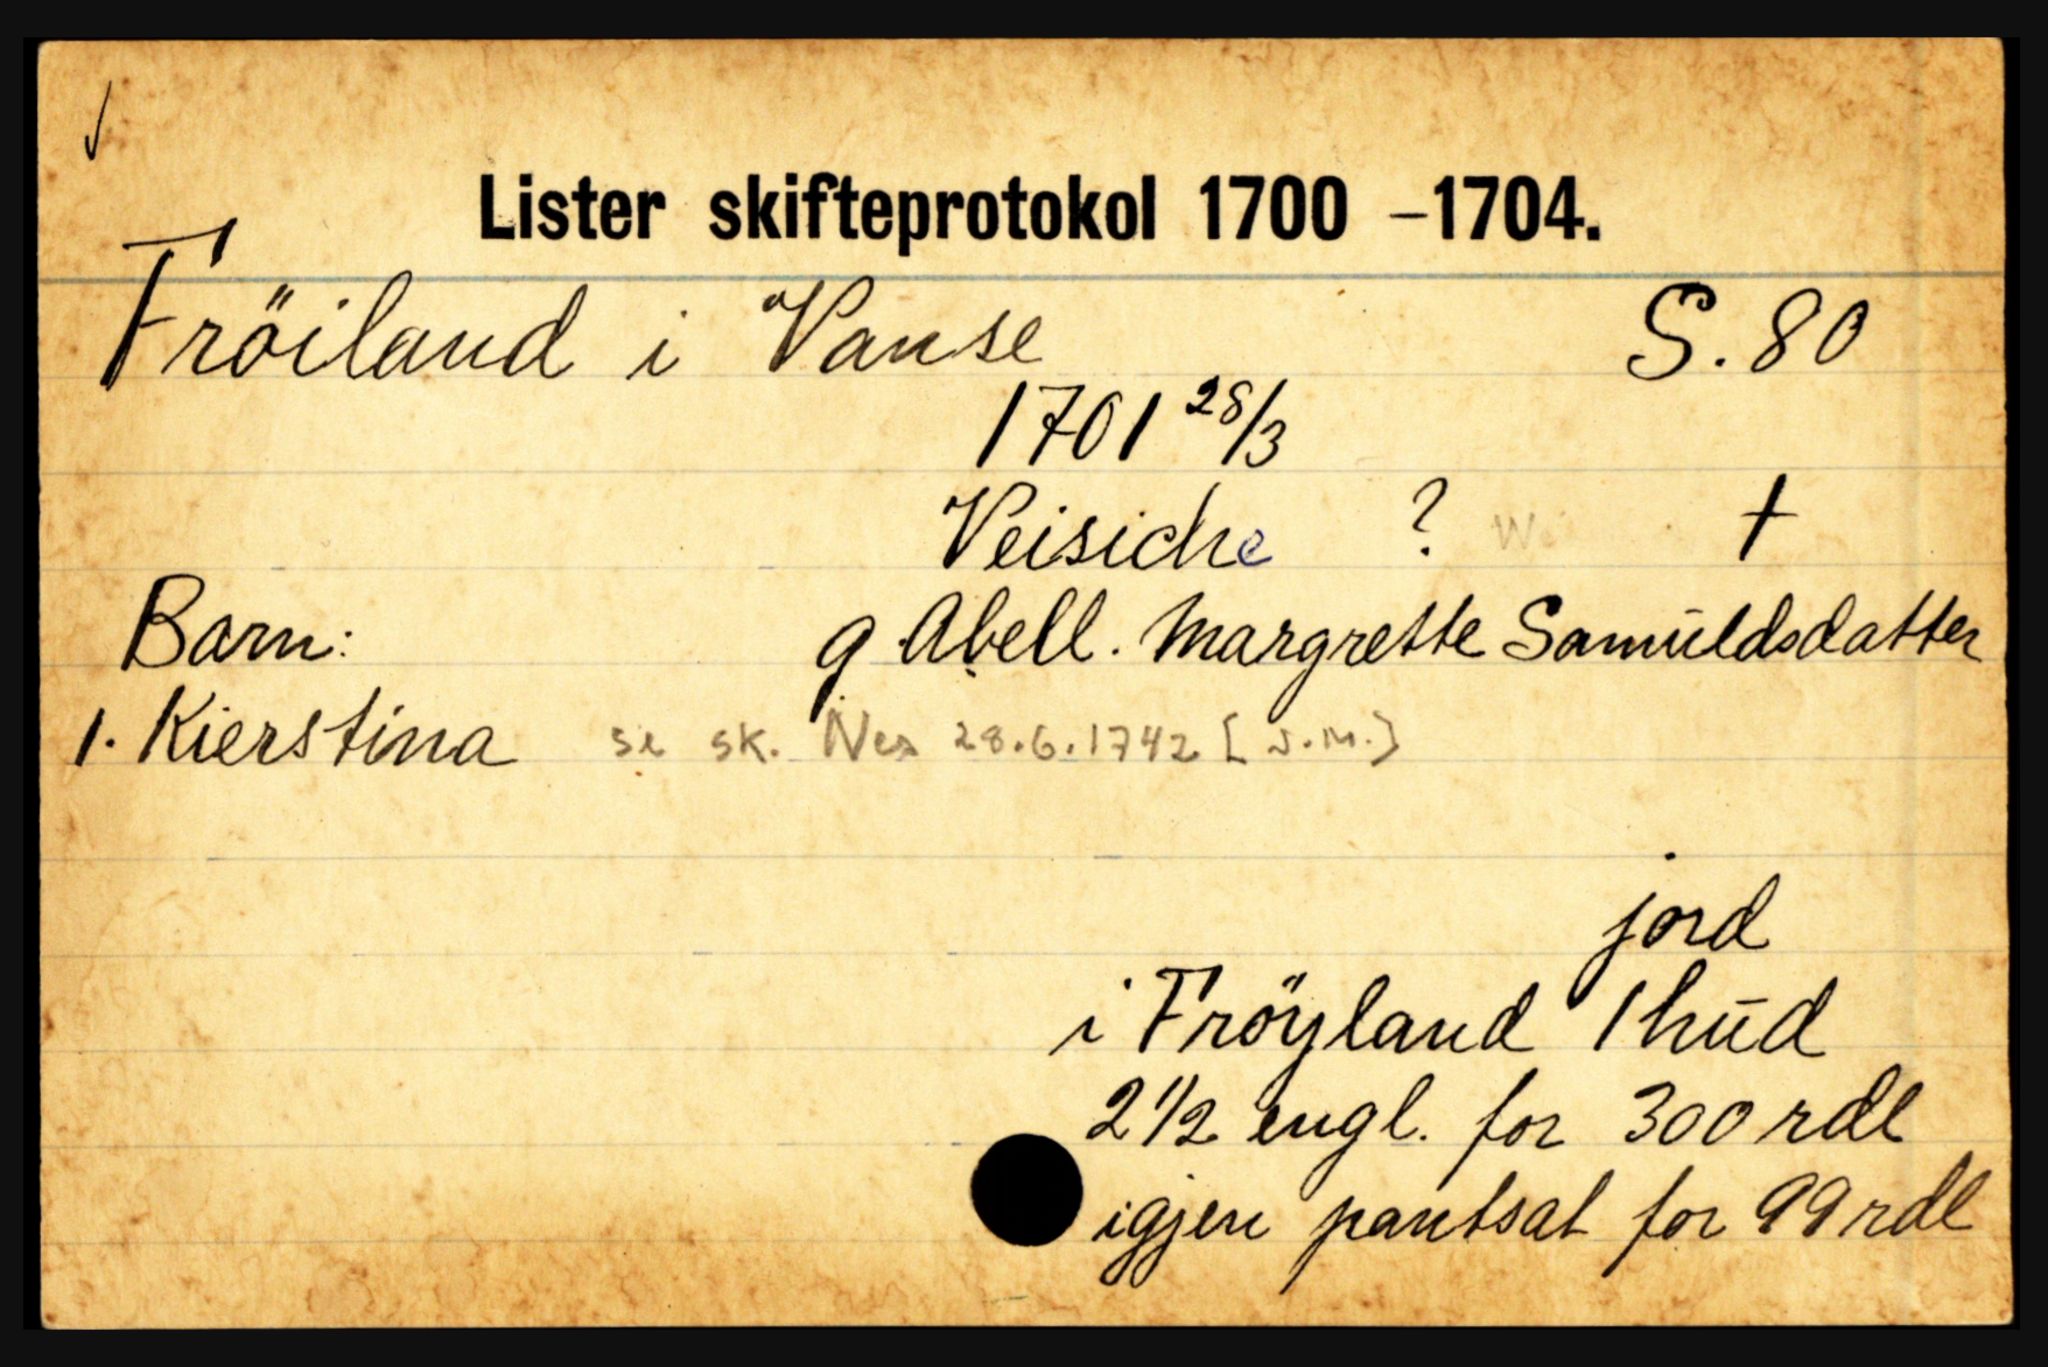 Lister skifteprotokol 1700 – 1704.
Fröiland i Vanse S. 80
1701 28/3
Veisiche ? †
Barn: g Abell. Margrette Samuldsdatter
1. Kierstina se sk. Nes 28.6.1742 [J.M.]
jord
i Fröyland 1 hud
2 1/2 engl. for 300 rdl
igjen pantsat for 99 rdl